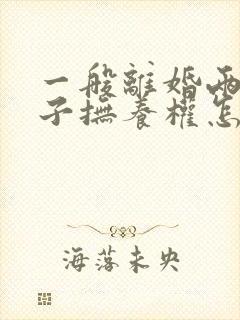 一般離婚兩
子撫養權怎
海落未央